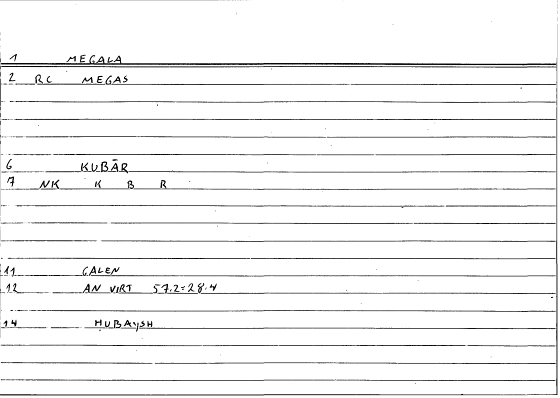 1 MEGALA
2 RC MEGAS
6 KUBĀR
7 NK K B R
11 GALEN
12 AN VIRT 57.2=28.4
14 ḤUBAYSH